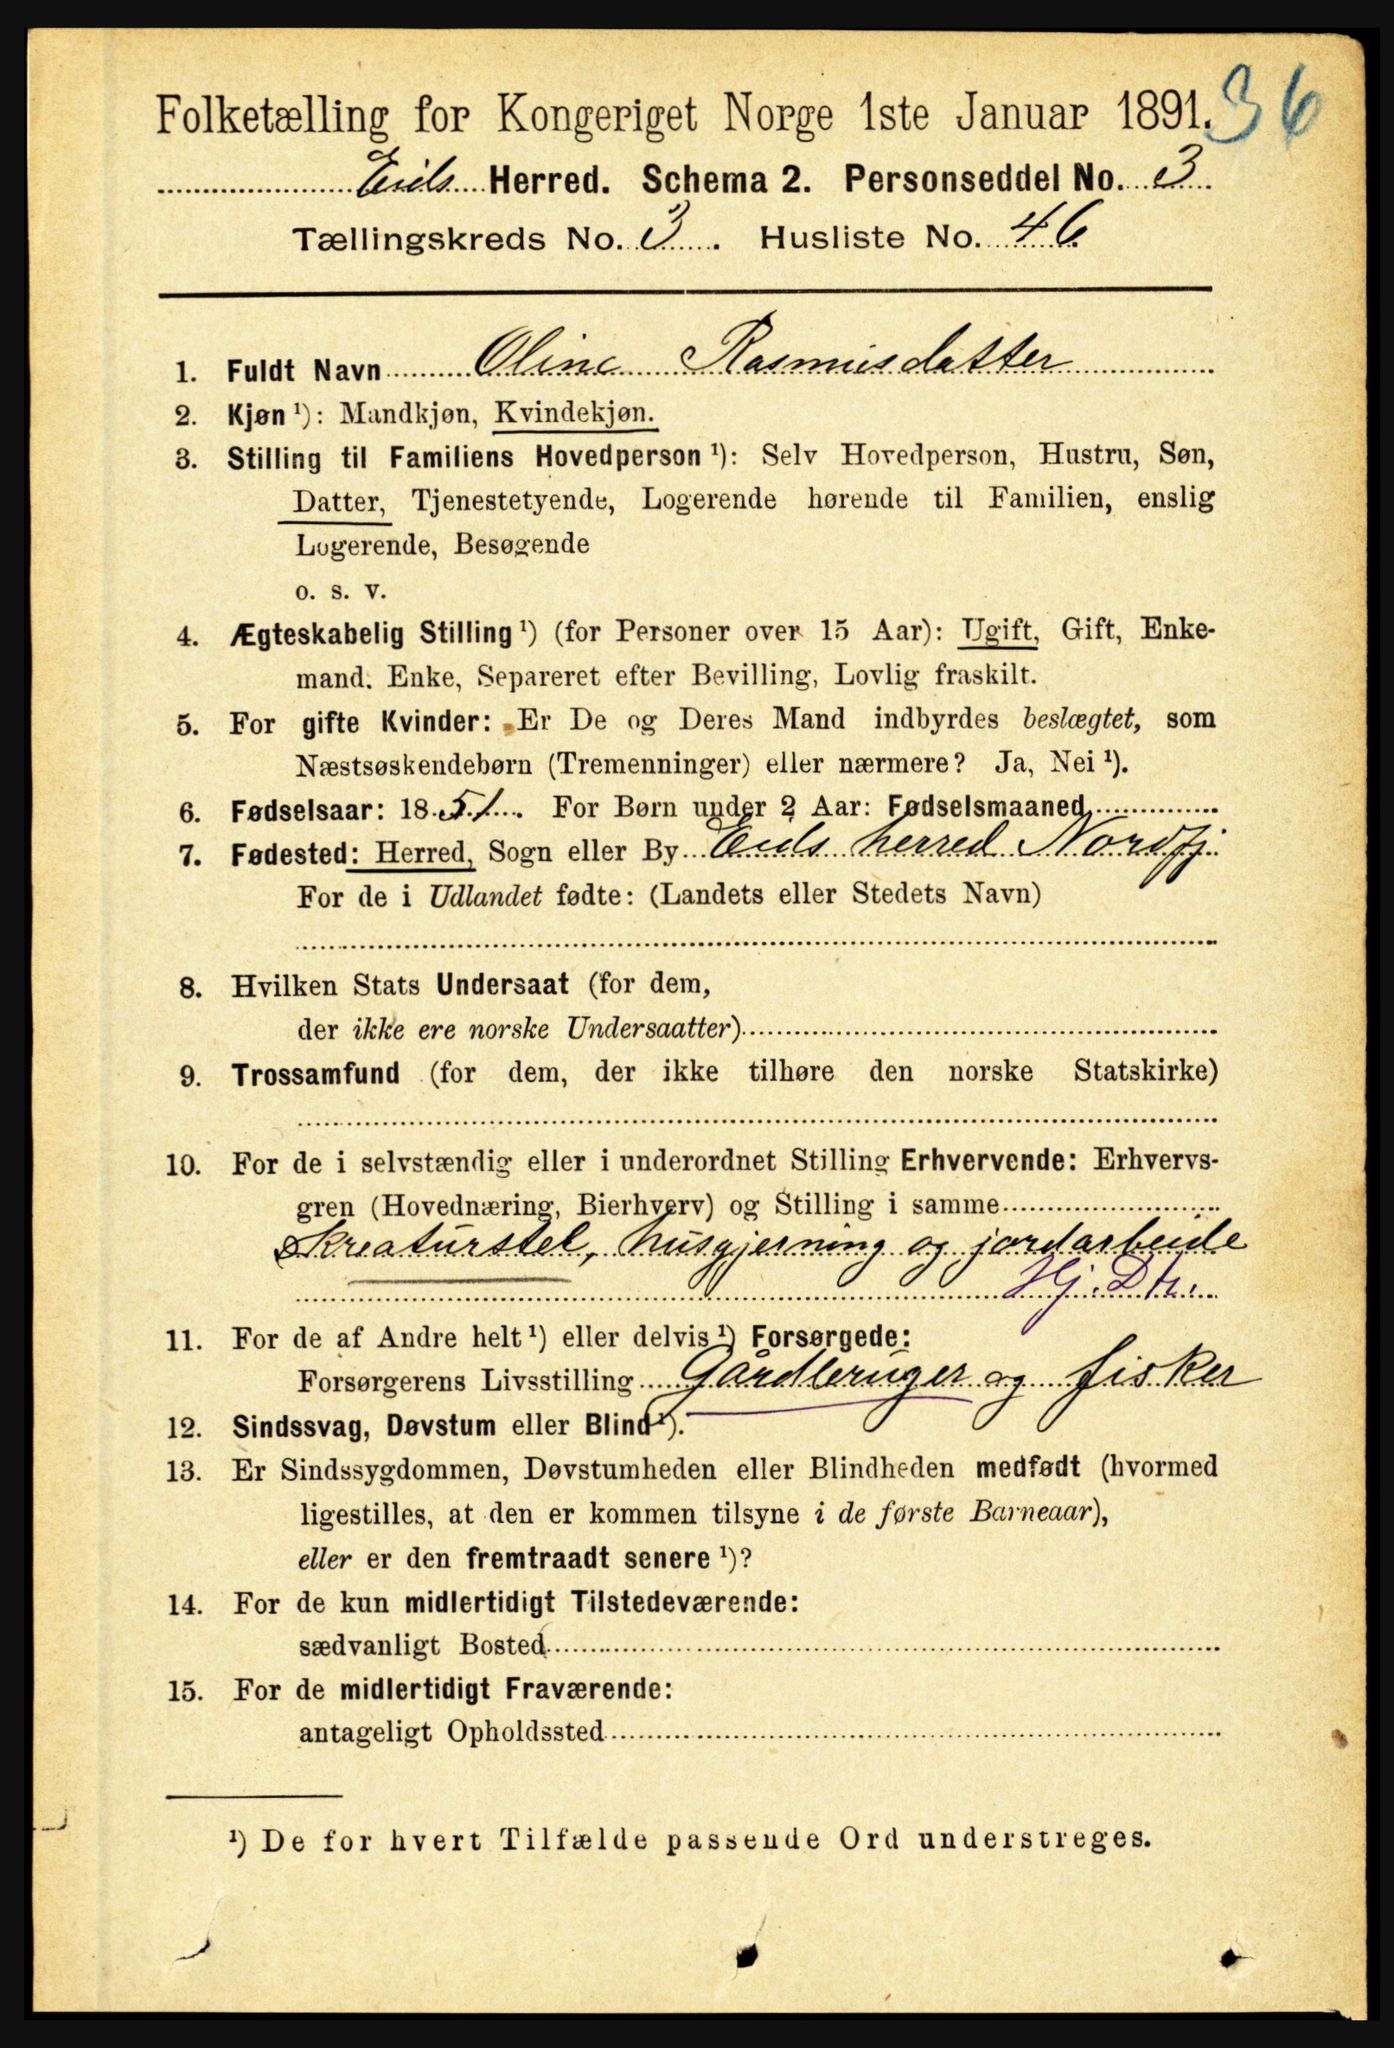 Folketælling for Kongeriget Norge 1ste Januar 1891. 36
Eids Herred. Schema 2. Personseddel No. 3
Tællingskreds No. 3. Husliste No. 46
1. Fuldt Navn Oline Rasmusdatter
2. Kjøn ¹): Mandkjøn, Kvindekjøn.
3. Stilling til Familiens Hovedperson ¹): Selv Hovedperson, Hustru, Søn,
Datter, Tjenestetyende, Logerende hørende til Familien, enslig
Logerende, Besøgende
o. s. v.
4. Ægteskabelig Stilling ¹) (for Personer over 15 Aar): Ugift, Gift, Enke-
mand. Enke, Separeret efter Bevilling, Lovlig fraskilt.
5. For gifte Kvinder: Er De og Deres Mand indbyrdes beslægtet, som
Næstsøskendebørn (Tremenninger) eller nærmere? Ja, Nei ¹).
6. Fødselsaar: 1851. For Børn under 2 Aar: Fødselsmaaned
7. Fødested: Herred, Sogn eller By Eids herred Nordfj.
For de i Udlandet fødte: (Landets eller Stedets Navn)
8. Hvilken Stats Undersaat (for dem,
der ikke ere norske Undersaatter)
9. Trossamfund (for dem, der ikke tilhøre den norske Statskirke)
10. For de i selvstændig eller i underordnet Stilling Erhvervende: Erhvervs-
gren (Hovednæring, Bierhverv) og Stilling i samme
Kreaturstel, husgjerning og jordarbeide
Hj. Dtr.
11. For de af Andre helt ¹) eller delvis ¹) Forsørgede:
Forsørgerens Livsstilling Gårdbruger og fisker
12. Sindssvag, Døvstum eller Blind ¹).
13. Er Sindssygdommen, Døvstumheden eller Blindheden medfødt (hvormed
ligestilles, at den er kommen tilsyne i de første Barneaar),
eller er den fremtraadt senere ¹)?
14. For de kun midlertidigt Tilstedeværende:
sædvanligt Bosted
15. For de midlertidigt Fraværende:
antageligt Opholdssted
¹) De for hvert Tilfælde passende Ord understreges.